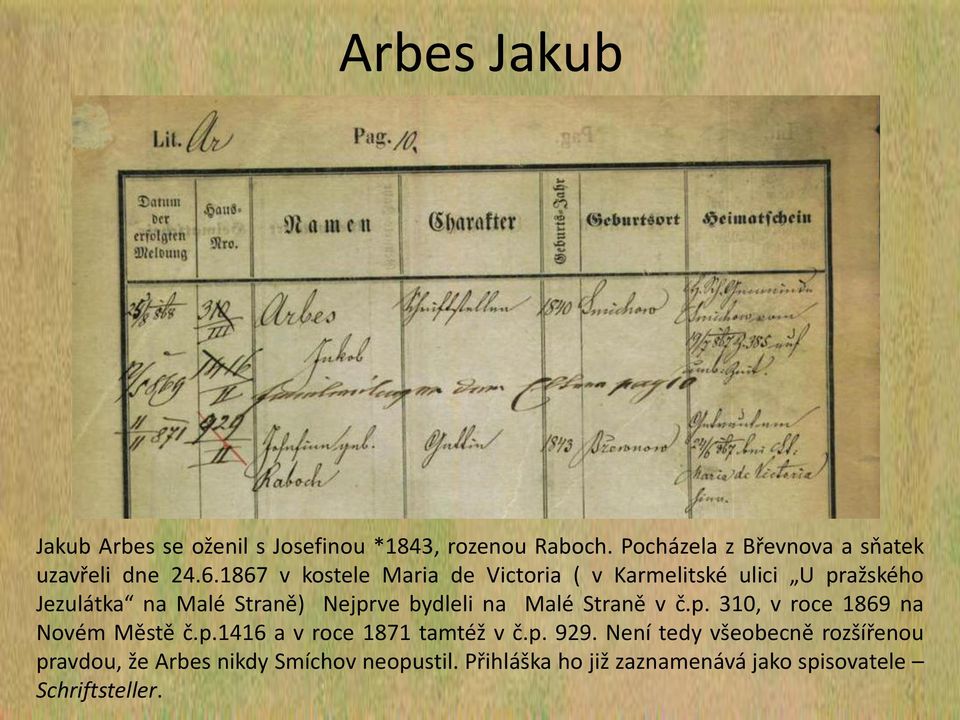 Arbes Jakub
Lit. Ar Pag. 10.
Datum der erfolgten Meldung
Haus-Nro.
Namen
Charakter
Geburts-Jahr
Geburtsort
Heimatschein
310 III Arbes Schriftsteller 1840 Smichow
Smichow vom
Jakob
1416 II
869
pag 10
871 929 II
geb. Gattin 1843 Břewnow
Raboch
Maria de Victoria
Jakub Arbes se oženil s Josefinou *1843, rozenou Raboch. Pocházela z Břevnova a sňatek
uzavřeli dne 24.6.1867 v kostele Maria de Victoria ( v Karmelitské ulici „U pražského
Jezulátka“ na Malé Straně) Nejprve bydleli na Malé Straně v č.p. 310, v roce 1869 na
Novém Městě č.p.1416 a v roce 1871 tamtéž v č.p. 929. Není tedy všeobecně rozšířenou
pravdou, že Arbes nikdy Smíchov neopustil. Přihláška ho již zaznamenává jako spisovatele –
Schriftsteller.